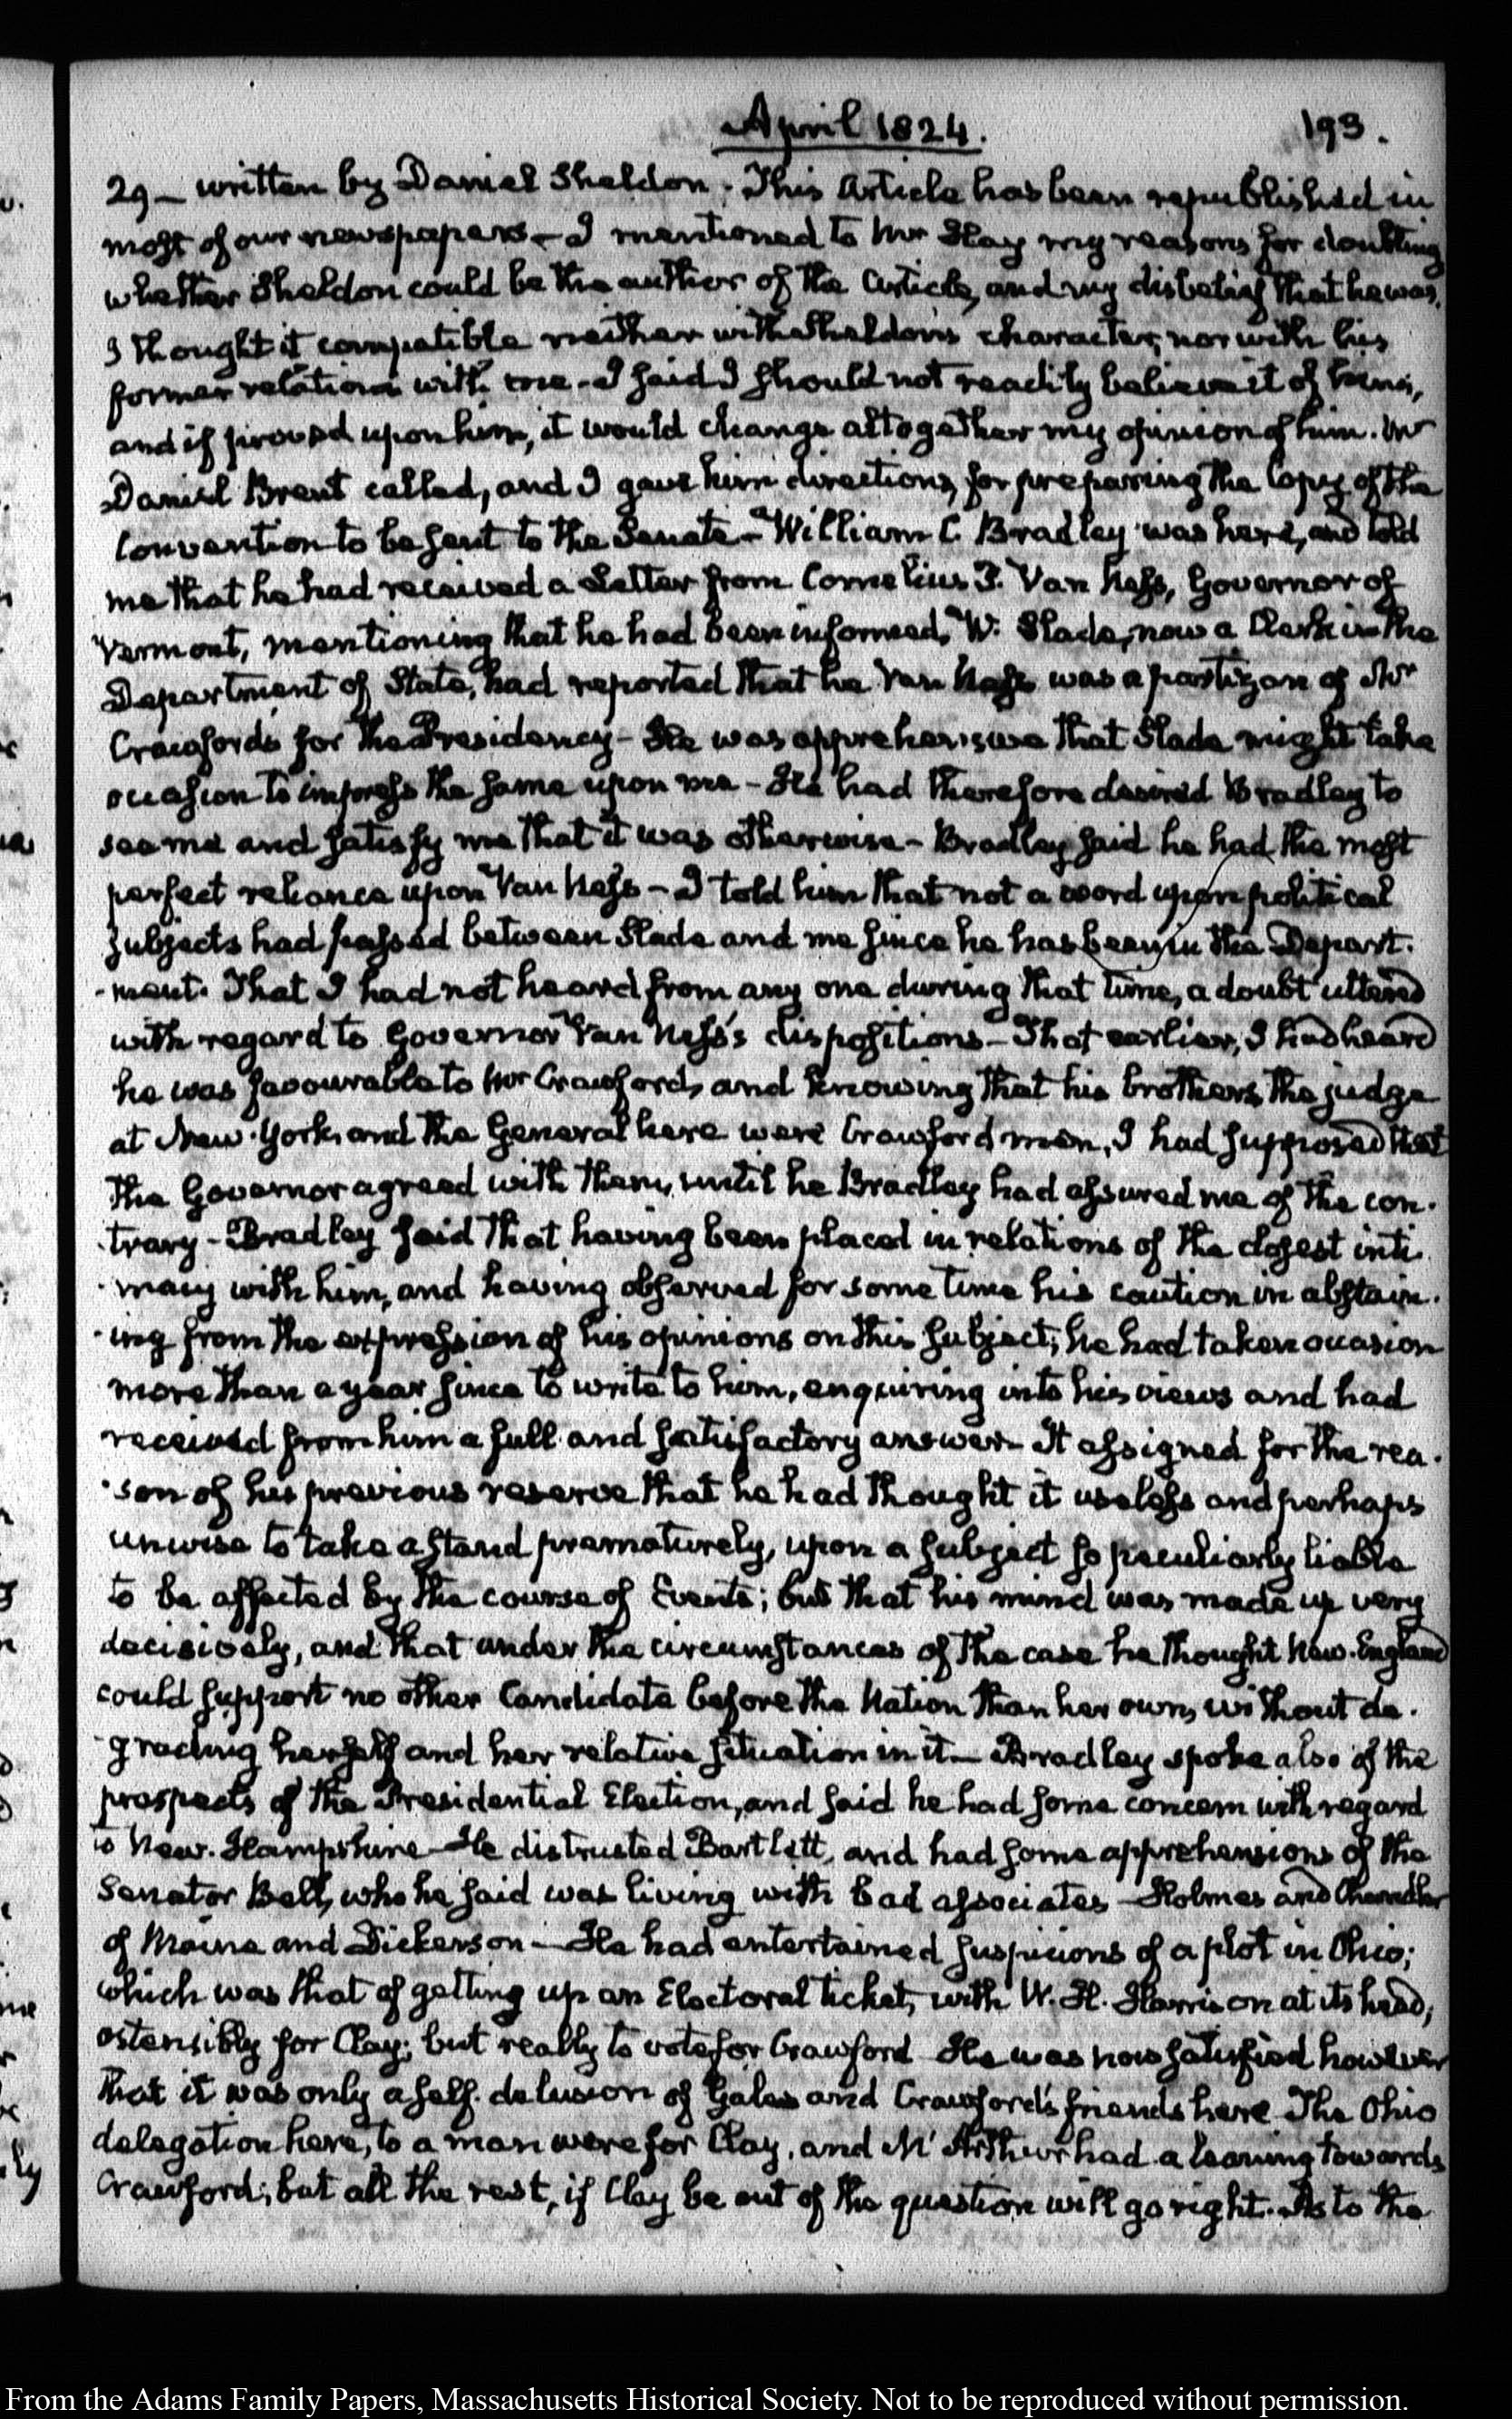 April 1824.
193.
29 — written by Daniel Sheldon. This Article has been republished in
most of our newspapers — I mentioned to Mr Hay my reasons for doubting
whether Sheldon could be the author of the Article, and my disbelief that he was.
I thought it compatible neither with Sheldon's character, nor with his
former relations with me — I said I should not readily believe it of him,
and if proved upon him, it would change altogether my opinion of him. Mr
Daniel Brent called, and I gave him directions for preparing the Copy of the
Convention to be sent to the Senate — William C. Bradley was here, and told
me that he had received a Letter from Cornelius P. Van Ness, Governor of
Vermont, mentioning that he had been informed, W. Slade, now a Clerk in the
Department of State, had reported that he Van Ness was a partizan of Mr
Crawford's for the Presidency — He was apprehensive that Slade might take
occasion to impress the same upon me — He had therefore desired Bradley to
see me and satisfy me that it was otherwise — Bradley said he had the most
perfect reliance upon Van Ness — I told him that not a word upon political
subjects had passed between Slade and me since he has been in the Depart-
-ment. That I had not heard from any one during that time, a doubt uttered
with regard to Governor Van Ness's dispositions — That earlier, I had heard
he was favourable to Mr Crawford, and knowing that his brothers, the judge
at New-York, and the General here were Crawford men, I had supposed that
the Governor agreed with them, until he Bradley had assured me of the con-
-trary — Bradley said that having been placed in relations of the closest inti
-macy with him, and having observed for some time his caution in abstain-
-ing from the expression of his opinions on this subject, he had taken occasion
more than a year since to write to him, enquiring into his views and had
received from him a full and satisfactory answer. It assigned for the rea-
-son of his previous reserve that he had thought it useless and perhaps
unwise to take a stand prematurely, upon a subject so peculiarly liable
to be affected by the course of Events; but that his mind was made up very
decisively, and that under the circumstances of the case he thought New-England
could support no other Candidate before the Nation than her own, without de-
-grading herself and her relative situation in it — Bradley spoke also of the
prospects of the Presidential Election, and said he had some concern with regard
to New-Hampshire — He distrusted Bartlett, and had some apprehensions of the
Senator Bell, who he said was living with bad associates — Holmes and Chandler
of Maine and Dickerson — He had entertained suspicions of a plot in Ohio;
which was that of getting up an Electoral ticket, with W. H. Harrison at its head,
ostensibly for Clay; but really to vote for Crawford. He was now satisfied however
that it was only a self-delusion of Gales and Crawford's friends here. The Ohio
delegation here, to a man were for Clay, and McArthur had a leaning towards
Crawford; but all the rest, if Clay be out of the question will go right. As to the
From the Adams Family Papers, Massachusetts Historical Society. Not to be reproduced without permission.